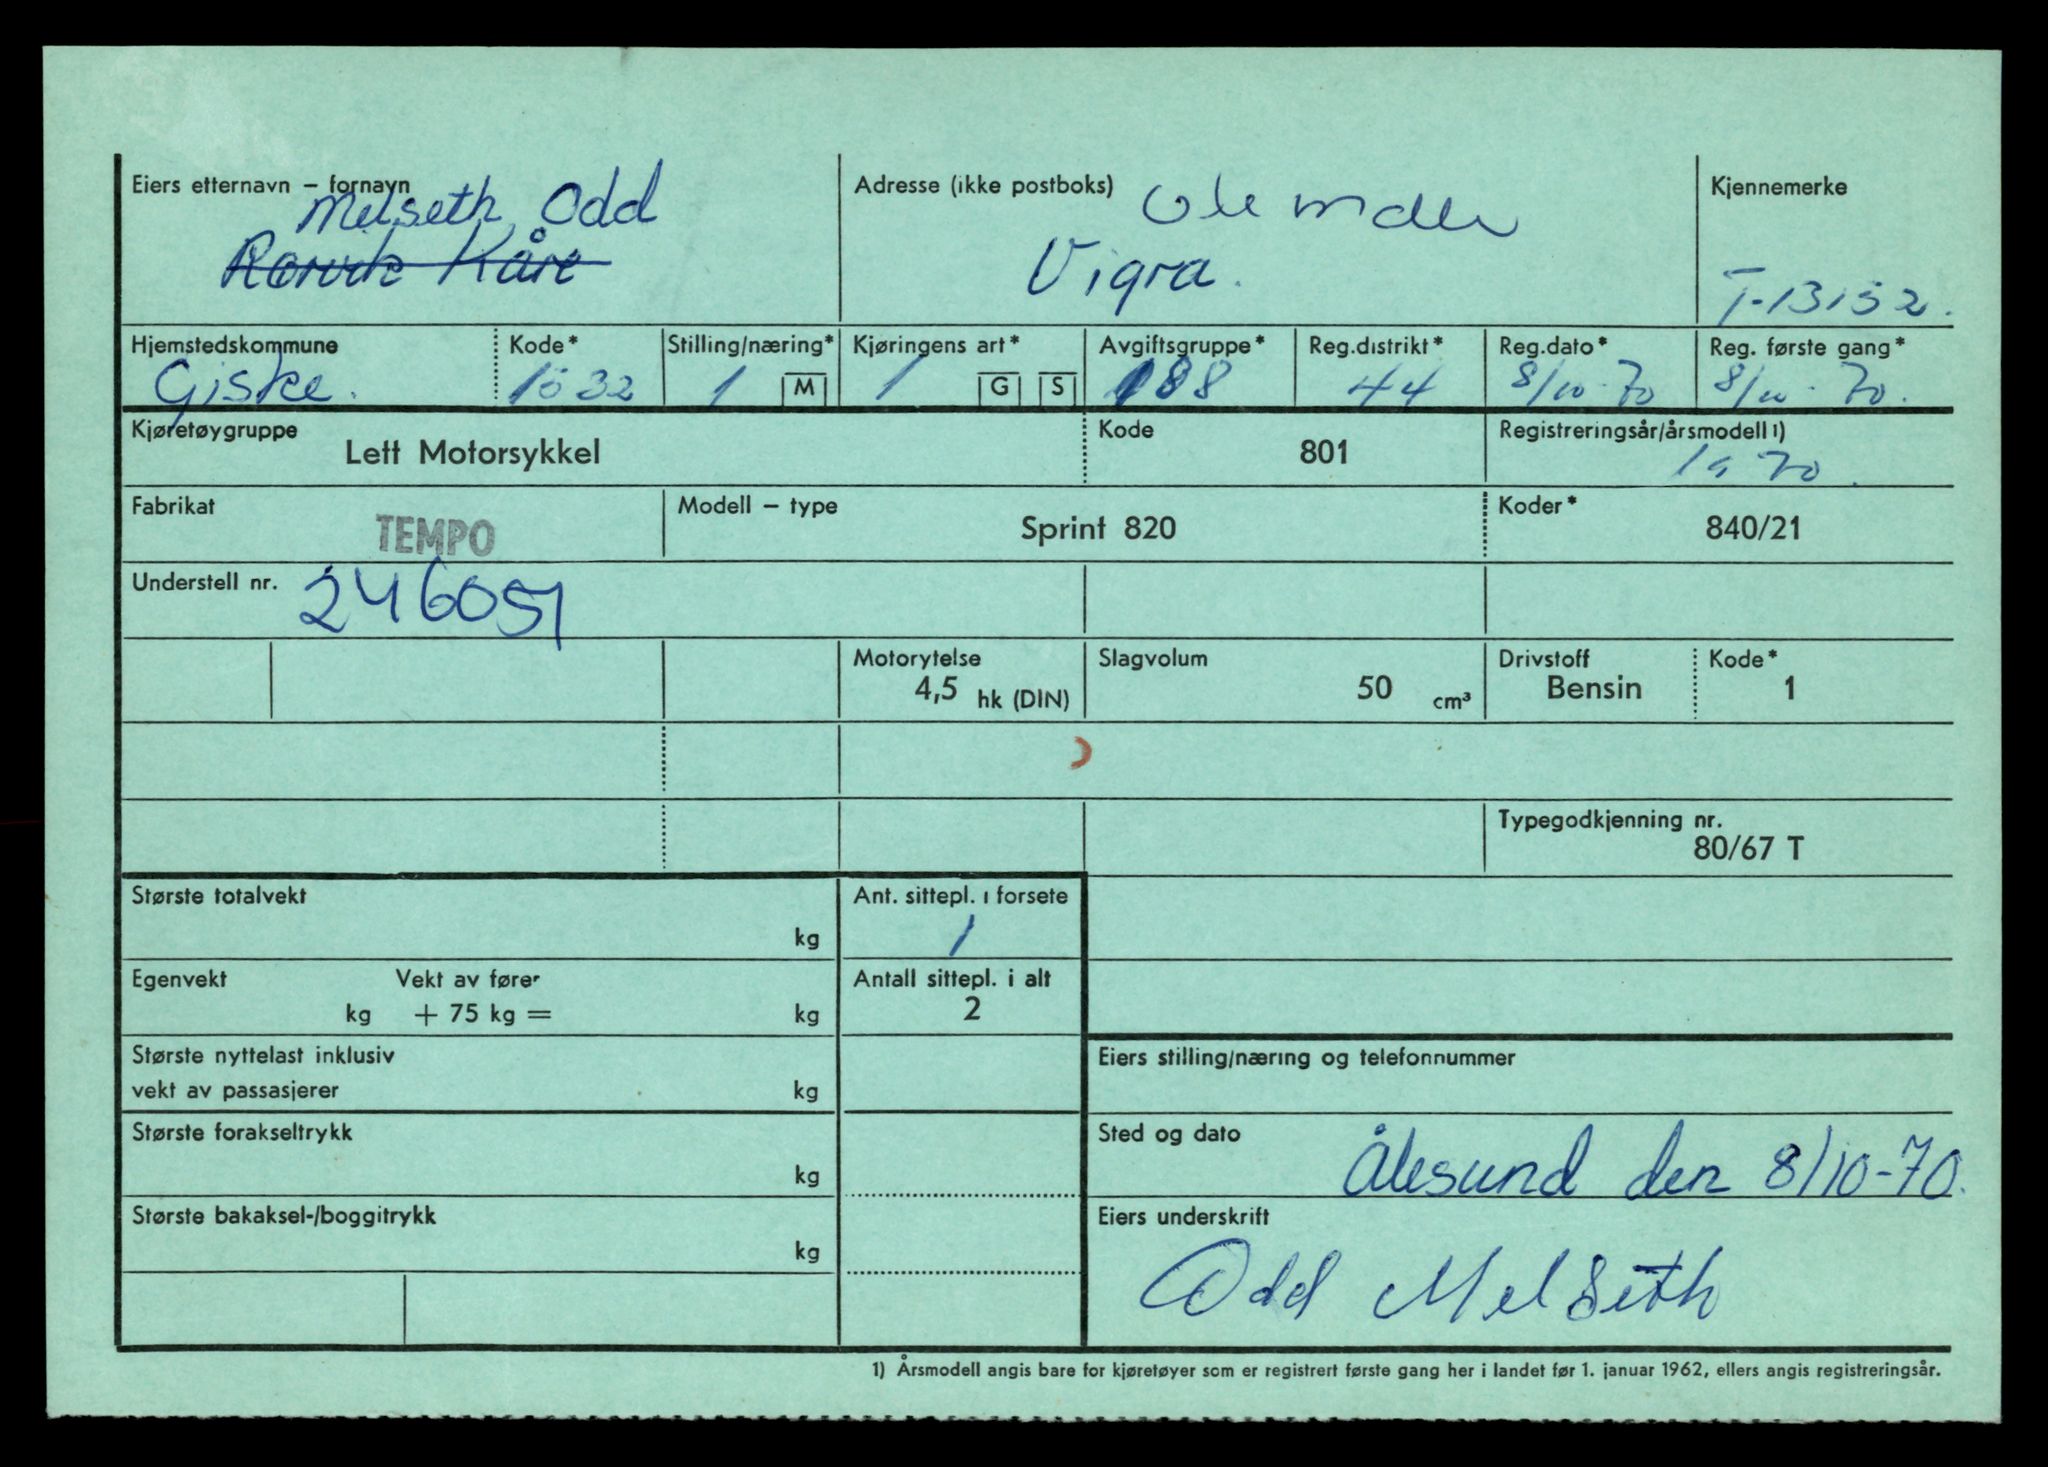 Eiers etternavn – fornavn
Melseth Odd
Kåre
Adresse (ikke postboks)
Vigra.
Kjennemerke
T-13152.
Hjemstedskommune
Giske.
Kode*
1532
Stilling/næring*
1 M
Kjøringens art*
1 G S
Avgiftsgruppe*
188
Reg.distrikt*
44
Reg.dato*
8/10-70
Reg. første gang*
8/10-70.
Kjøretøygruppe
Lett Motorsykkel
Kode
801
Registreringsår/årsmodell 1)
1970.
Fabrikat
TEMPO
Modell – type
Sprint 820
Koder*
840/21
Understell nr.
246051
Motorytelse
4,5 hk (DIN)
Slagvolum
50 cm³
Drivstoff
Bensin
Kode*
1
Typegodkjenning nr.
80/67 T
Største totalvekt
kg
Ant. sittepl. i forsete
1
Egenvekt Vekt av fører
kg + 75 kg = kg
Antall sittepl. i alt
2
Største nyttelast inklusiv
vekt av passasjerer kg
Eiers stilling/næring og telefonnummer
Største forakseltrykk
kg
Sted og dato
Ålesund den 8/10-70.
Største bakaksel-/boggitrykk
kg
Eiers underskrift
Odd Melseth
1) Årsmodell angis bare for kjøretøyer som er registrert første gang her i landet før 1. januar 1962, ellers angis registreringsår.